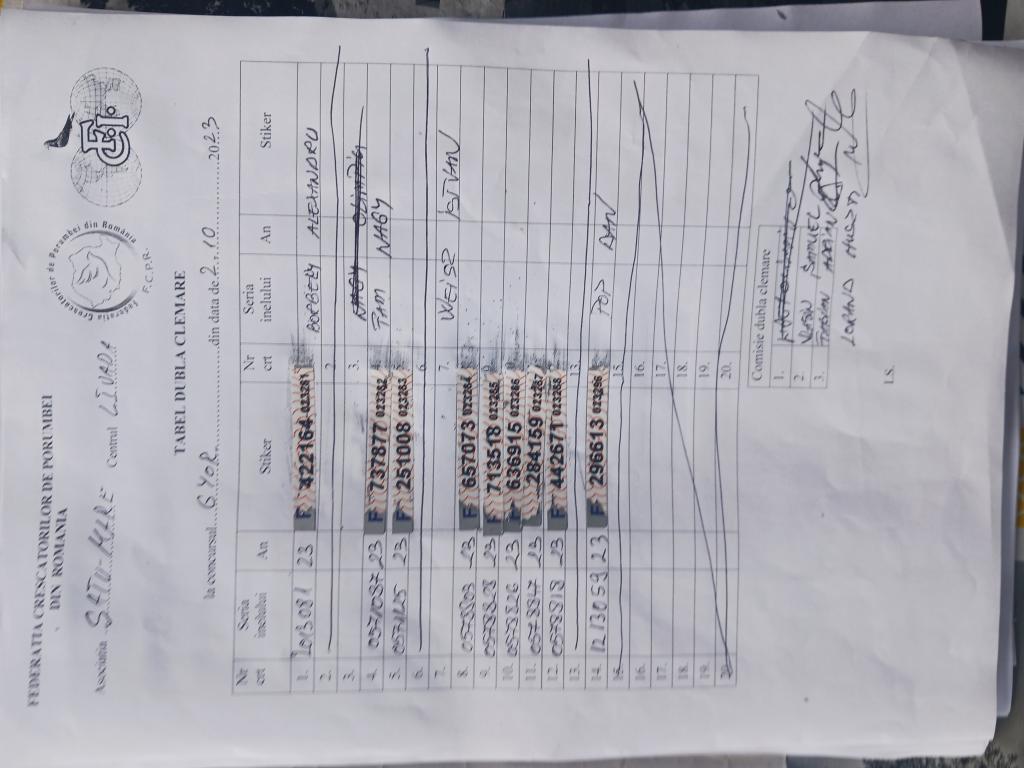 FEDERATIA CRESCATORILOR DE PORUMBEI
DIN ROMANIA
Federatia Crescatorilor de Porumbei din România
F.C.P.R.
FCI
Asociatia SATU-MARE Centrul LIVADA
TABEL DUBLA CLEMARE
la concursul...GYOR...din data de.2...10...2023
Nr cert Seria inelului An Stiker Nr cert Seria inelului An Stiker
1. 2013081 23 F 422164 023281 BORBELY ALEXANDRU
2. 2.
3. 3.
4. 0571087 23 F 737877 023282 FAM NAGY
5. 0571125 23 F 251008 023283
6. 6.
7. 7. WEISZ ISTVAN
8. 0578803 23 F 657073 023284
9. 0578808 23 F 713518 023285
10. 0578816 23 F 636915 023286
11. 0578847 23 284159 023287
12. 0578818 23 F 442671
13. 13.
14. 1213059 23 F 296613 POP DAN
15. 15.
16. 16.
17. 17.
18. 18.
19. 19.
20. 20.
Comisie dubla clemare
1.
2. SAMUEL
3.
LORAND
I.S.